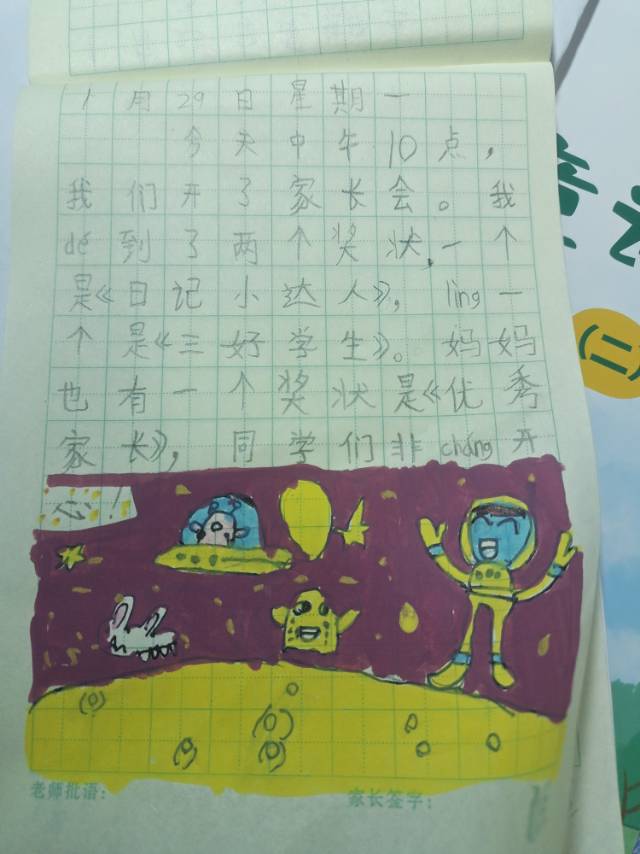 1月29日星期一
今天中午10点，
我们开了家长会。我
dé到了两个奖状，一个
是《日记小达人》，lìng一
个是《三好学生》。妈妈
也有一个奖状是《优秀
家长》，同学们非cháng开
心！
老师批语：
家长签字：
（二）